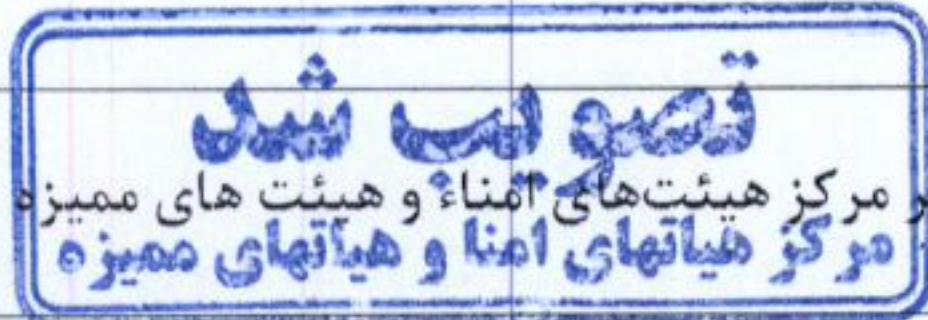 تصویب شد
ر مرکز هیئت‌های امناء و هیئت های ممیزه
مرکز هیاتهای امنا و هیاتهای ممیزه